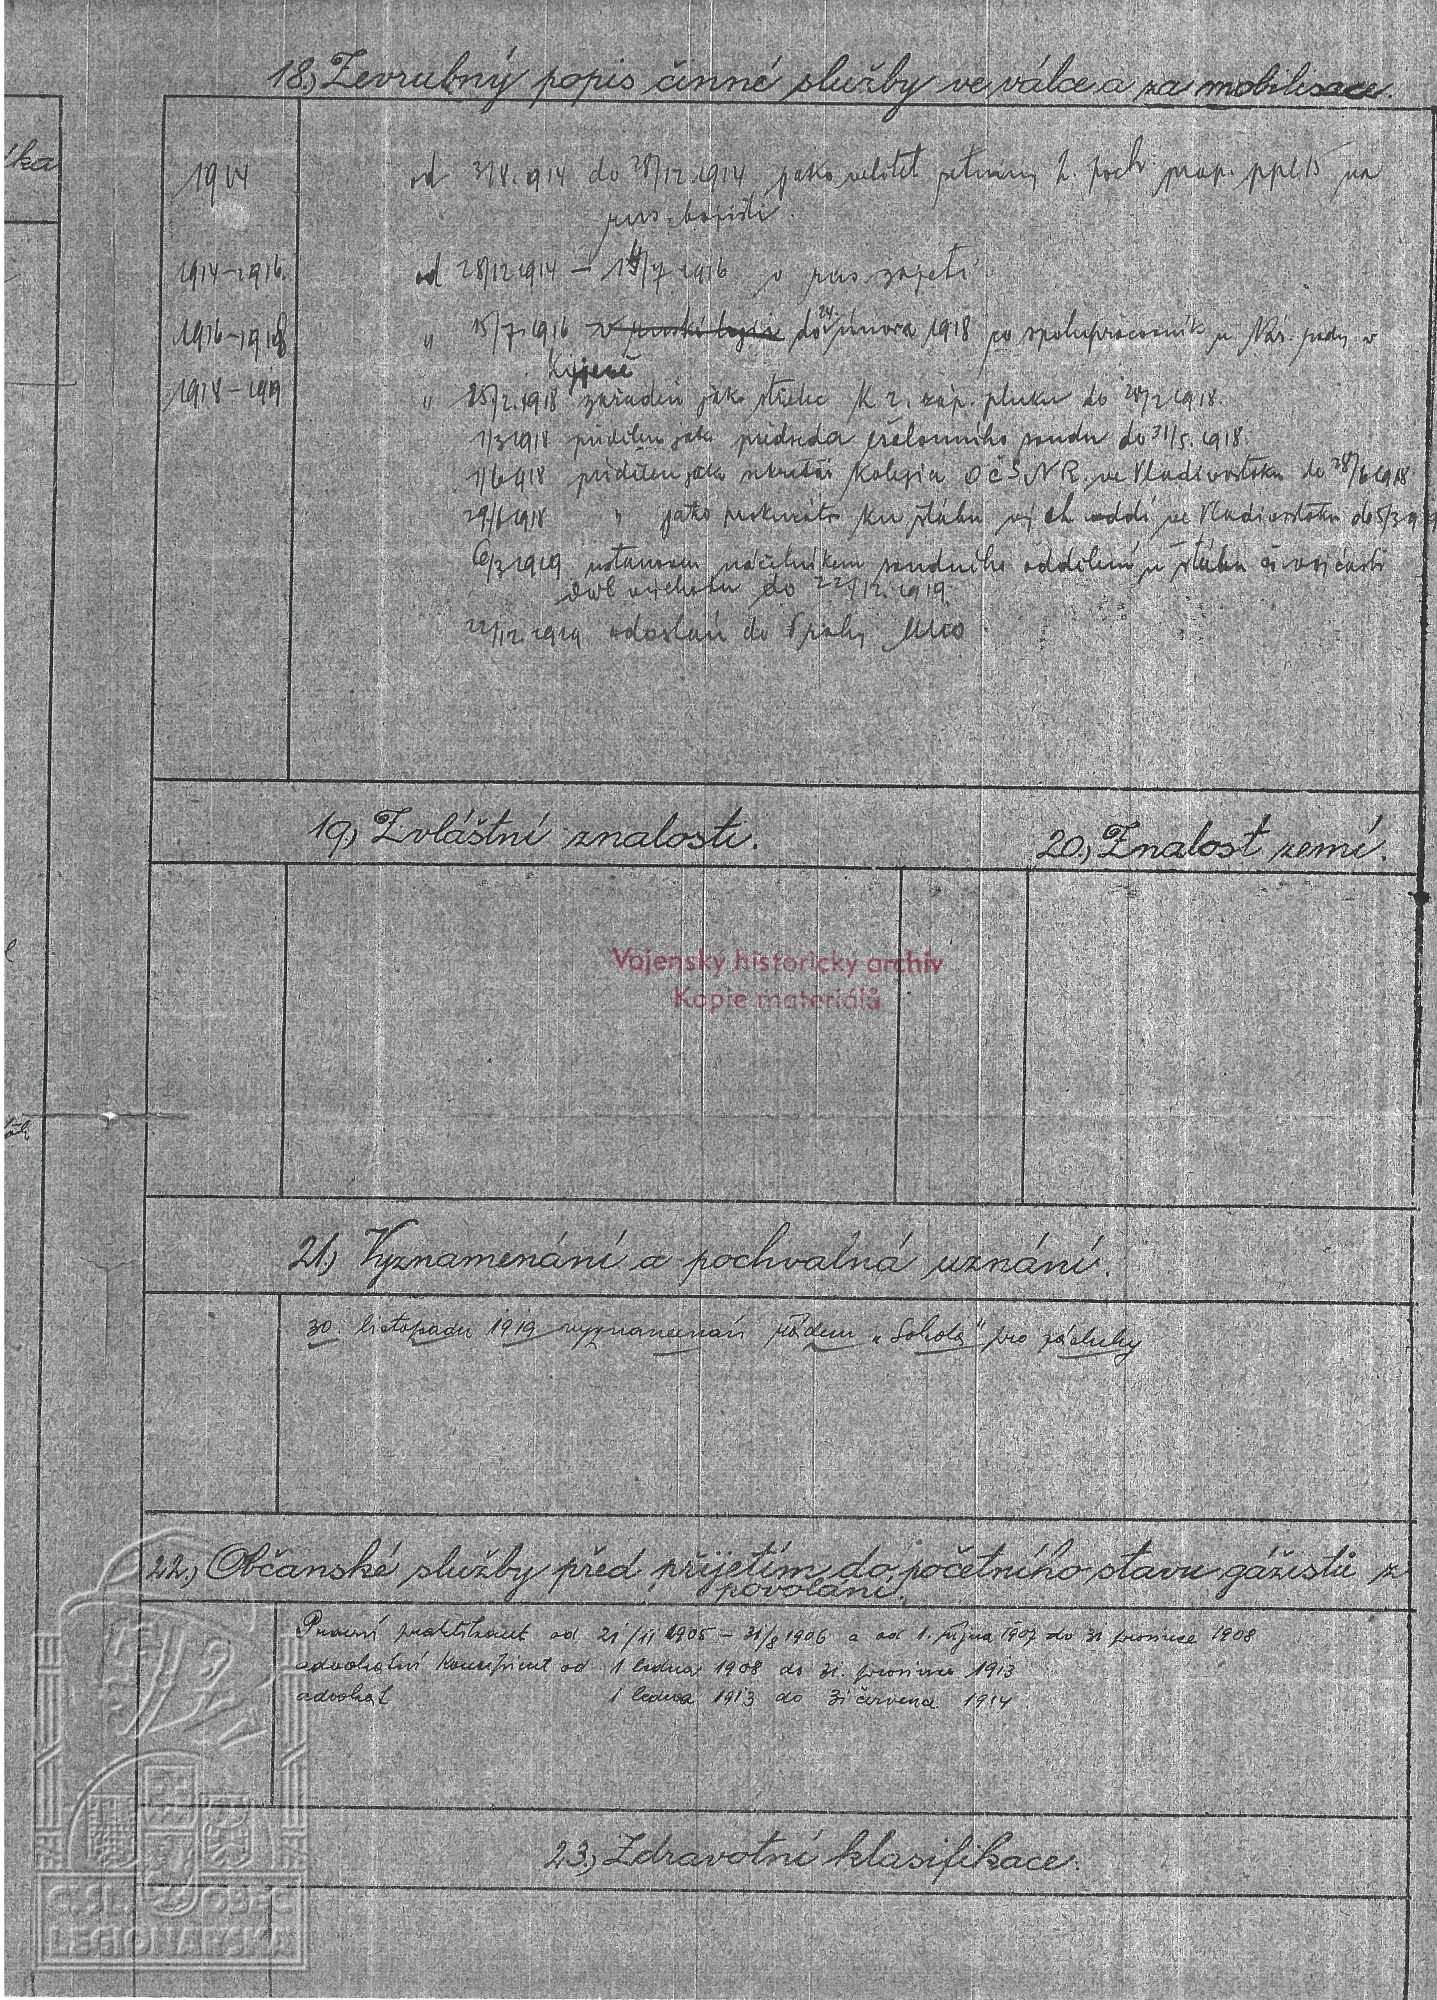 18.) Zevrubný popis činné služby ve válce a za mobilisace.
1914 od 31/8.1914 do 28/12.1914 jako velitel pp.č.15 na
rus. bojišti.
1914–1916. od 28/12 1914 – 14/7 1916 v rus. zajetí
1916–1918 " 15/7.1916 do 24. února 1918 co spolupracovník u Nár. rady v
Kyjevě
1918–1919 " 25/2.1918 zařaděn jako střelec k 2. záp. pluku do 28/2 1918.
1/3 1918 přidělen jako předseda ešelonního soudu do 31/5.1918.
1/6 1918 přidělen jako sekretář Kolegia OČSNR ve Vladivostoku do 28/6 1918
29/6 1918 " jako prokurátor ku štábu vých oddí ve Vladivostoku do 5/3 1919
6/3 1919 ustanoven náčelníkem soudního oddělení u štábu čs vojsk části
Dál. východu do 22/12.1919.
22/12.1919 odeslán do
19.) Zvláštní znalosti.
20.) Znalost zemí.
Vojenský historický archiv
Kopie materiálů
21.) Vyznamenání a pochvalná uznání.
30. listopadu 1919 vyznamenán řádem „Sokola" pro zásluhy
22.) Občanské služby před přijetím do početního stavu gážistů z
povolání.
Právní praktikant od 21/11 1905 – 31/8 1906 a od 1. října 1907 do 31 prosince 1908
advokátní koncipient od 1 ledna 1908 do 31. prosince 1913
advokát 1 ledna 1913 do 31 července 1914
23.) Zdravotní klasifikace.
Č.S. OBEC
LEGIONÁŘSKÁ